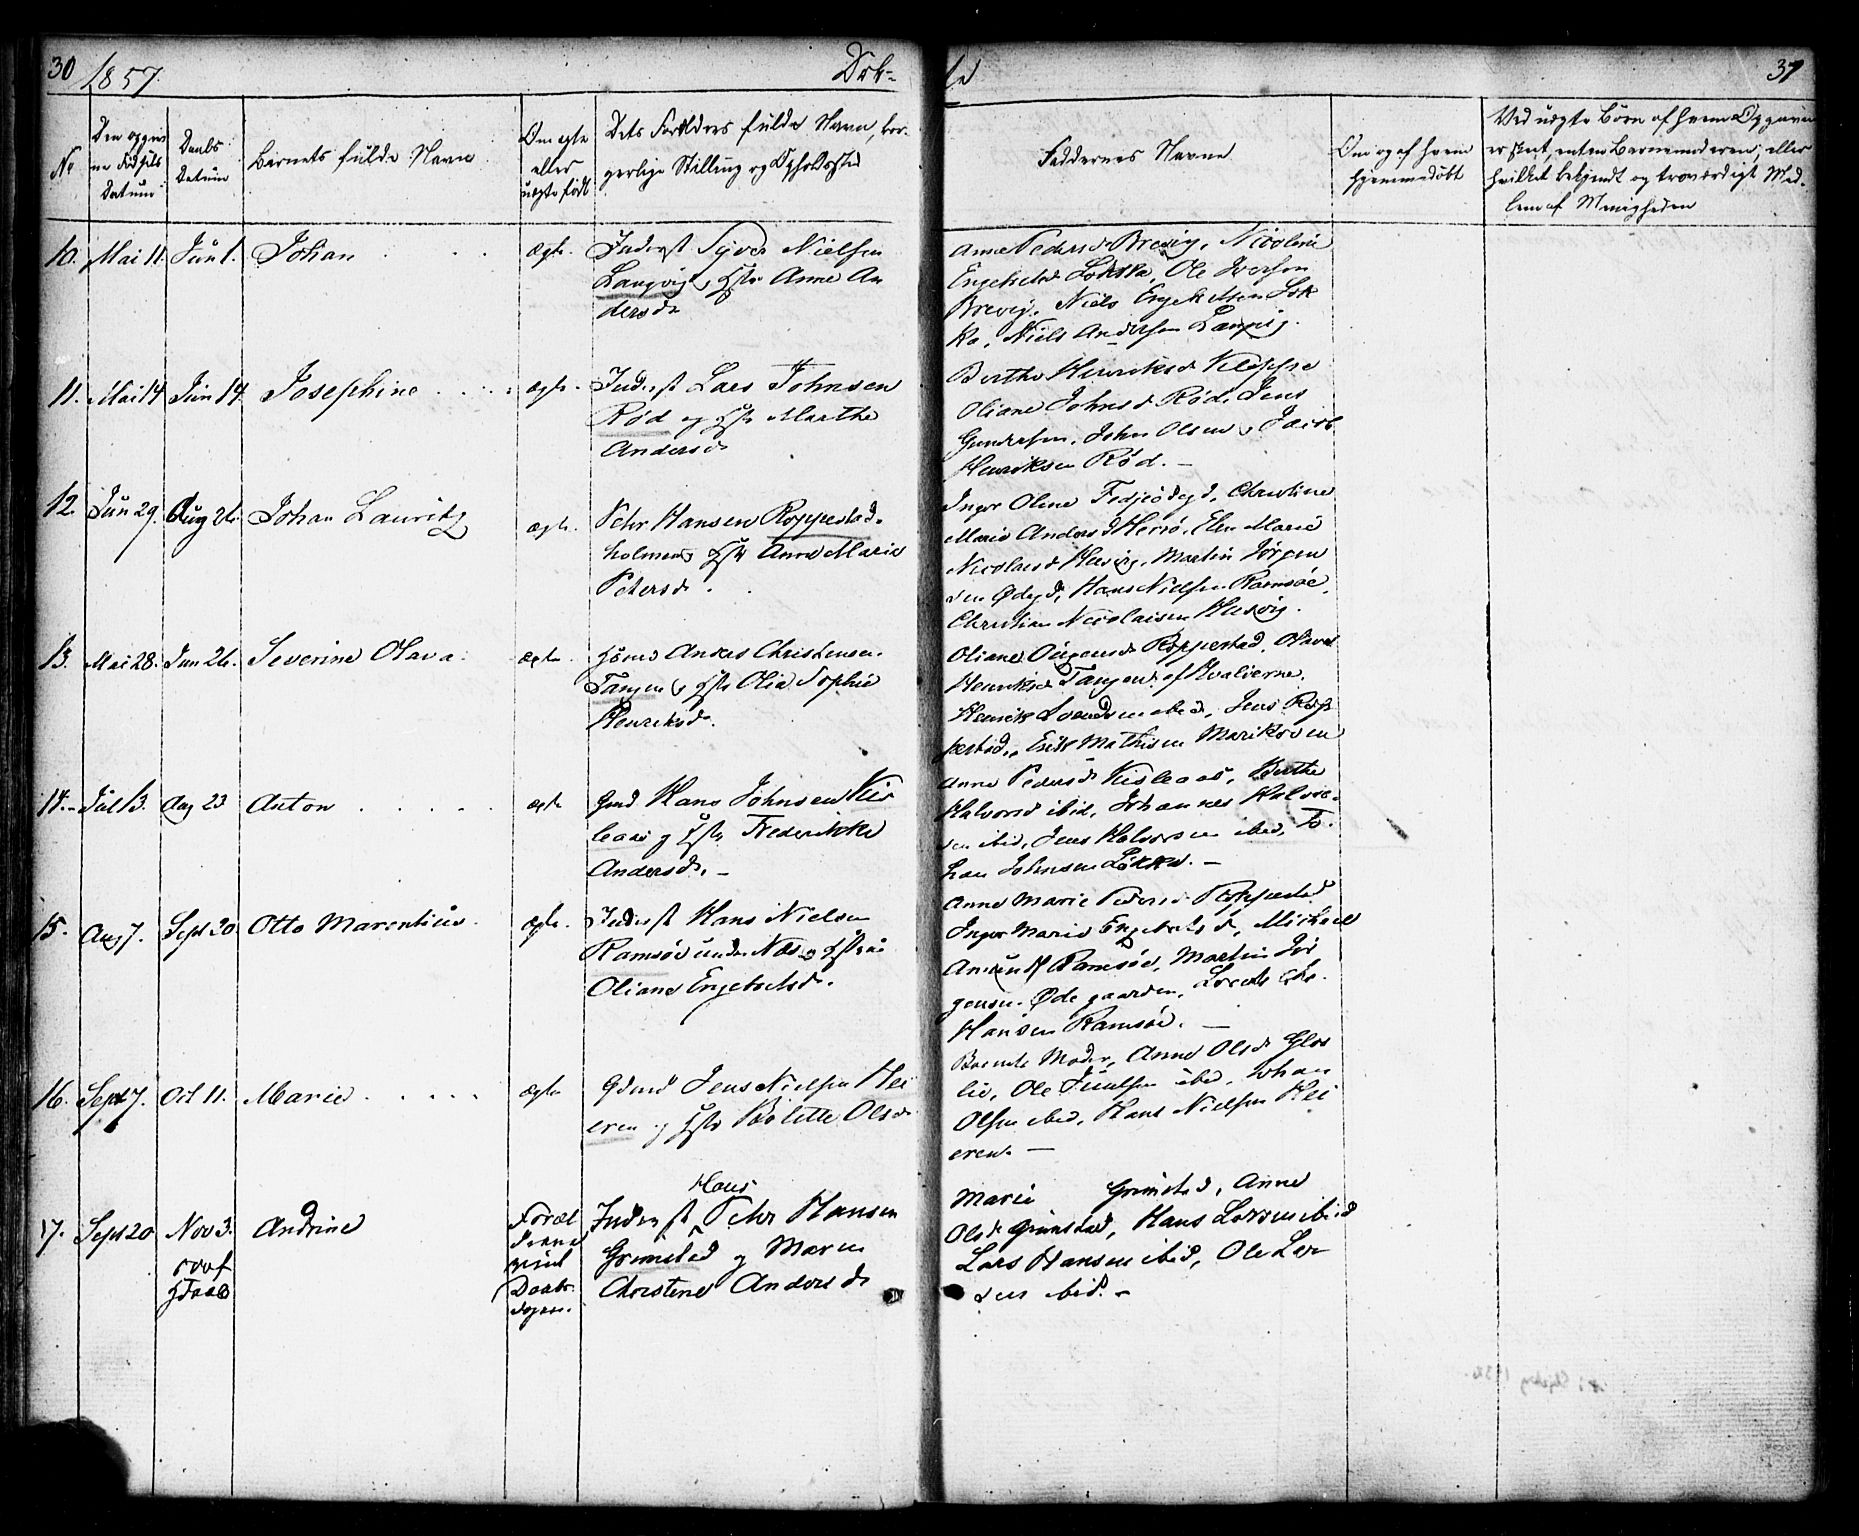 30 1857. Døb-
te 37
No
Den opgiv
ne Fødsels
Datum
Daabs
Datum
Barnets fulde Navn
Om ægte
eller
uægte født
Dets Forældres fulde Navn, bor-
gerlige Stilling og Opholdssted
Faddernes Navne
Om og af hvem
hjemmedøbt
Ved uægte Børn af hvem Opgaven
er skeet, enten Barnemoderen, eller
hvilket bekjendt og troværdigt Med-
lem af Menigheden
10. Mai 11. Jun 1. Johan ægte. Inderst Syver Nielsen
Langvig, Hstr Anne An
dersd
Anne Pedersd Brevig, Nicoline
Engebretsd Løkka, Ole Iversen
Brevig, Niels Engebretsen Løk
ka, Niels Andersen Langvig.
11. Mai 14 Jun 14 Josephine ægte. Inderst Lars Johnsen
Rød og Hstr Marthe
Andersd
Berthe Henriksd Kleppe
Oliane Johnsd Rød, Jens
Gundersen, John Olsen, Jacob
Henriksen Rød. —
12. Jun 29. Aug 26. Johan Lauritz ægte. Pehr Hansen Roppestad-
holmen, Hstr Anne Marie
Petersd.
Inger Oline Ødegd, Christine
Marie Andersd Herø, Elen Marie
Nicolaisd Hersvig, Martin Jørgen
sen Ødegd, Hans Nielsen Ramsøe,
Christian Nicolaisen
13. Mai 28. Jun 26. Severine Olava. ægte. Anders Christensen
Tangen, Hstr Olia Sophie
Henriksd.
Oliane Roppestad, Olava
Henriksd Tangen af Hvaløerne,
Henrik Svendsen ibid, Jens Rop
pestad, Erik Mathisen
14. Jul 13. Aug 23 Anton ægte Gmd Hans Johnsen Kis
leaas og Hstr Frederikke
Andersd. —
Anne Pedersd Kisleaas, Berthe
Halvorsd ibid, Johannes Halvor-
sen ibid, Jens Halvorsen ibid, Jo-
han Johnsen Løkka. —
15. Aug 7. Sept 20 Otto Marentius ægte. Inderst Hans Nielsen
Ramsøe under Næs og Hstrue
Oliane Engebretsd.
Anne Marie Pedersd Roppestad
Inger Marie Engebretsd, Michael
Ramsøe, Martin Jør
gensen Ødegaarden,
Hansen Ramsøe. —
16. Sept 7. Oct 11. Marie ægte Gdmd Jens Nielsen Hei
eren og Hstr Bolette Olsd
Barnets Moder, Anne Olsd Glos
lie, Ole Juulsen ibid, Johan
Olsen ibid, Hans Nielsen Hei
eren. —
17. Sept 20 Nov 3. Andrine Foræl
drene
Daabs-
dagen.
Hans
Inderst Pehr Hansen
Grimstad og Maren
Christine Andersd
Marie Grimstad, Anne
Olsd Grimstad, Hans Larsen ibid
Lars Hansen ibid, Ole Lar
sen ibid. —